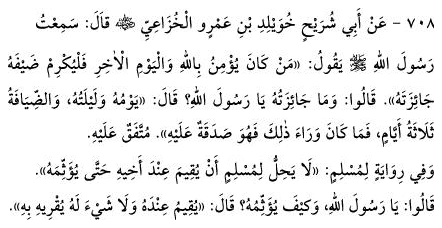 ٧٠٨ - عَنْ أَبِي شُرَيْحٍ خُوَيْلِدِ بْنِ عَمْرٍو الْخُزَاعِيِّ ﷺ قَالَ: سَمِعْتُ
رَسُولَ اللهِ ﷺ يَقُولُ: «مَنْ كَانَ يُؤْمِنُ بِاللهِ وَالْيَوْمِ الْآخِرِ فَلْيُكْرِمْ ضَيْفَهُ
جَائِزَتَهُ». قَالُوا: وَمَا جَائِزَتُهُ يَا رَسُولَ اللهِ؟ قَالَ: «يَوْمُهُ وَلَيْلَتُهُ، وَالضِّيَافَةُ
ثَلَاثَةُ أَيَّامٍ، فَمَا كَانَ وَرَاءَ ذٰلِكَ فَهُوَ صَدَقَةٌ عَلَيْهِ». مُتَّفَقٌ عَلَيْهِ.
وَفِي رِوَايَةٍ لِمُسْلِمٍ: «لَا يَحِلُّ لِمُسْلِمٍ أَنْ يُقِيمَ عِنْدَ أَخِيهِ حَتَّى يُؤْثِمَهُ».
قَالُوا: يَا رَسُولَ اللهِ، وَكَيْفَ يُؤْثِمُهُ؟ قَالَ: «يُقِيمُ عِنْدَهُ وَلَا شَيْءَ لَهُ يُقْرِيهِ بِهِ».